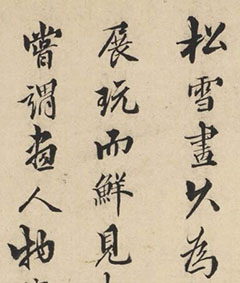 松雪畫久為
展玩而鮮見
嘗謂畫人物